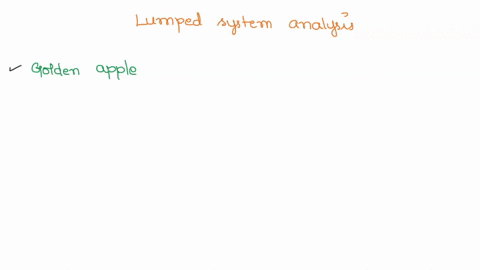 Lumped system analysis
Golden apple